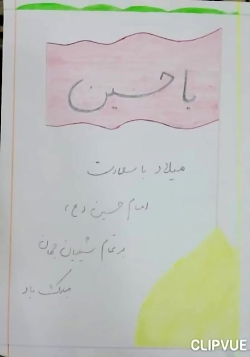 یا حسین
میلاد با سعادت
امام حسین (ع)
بر تمام شیعیان جهان
مبارک باد
CLIPVUE